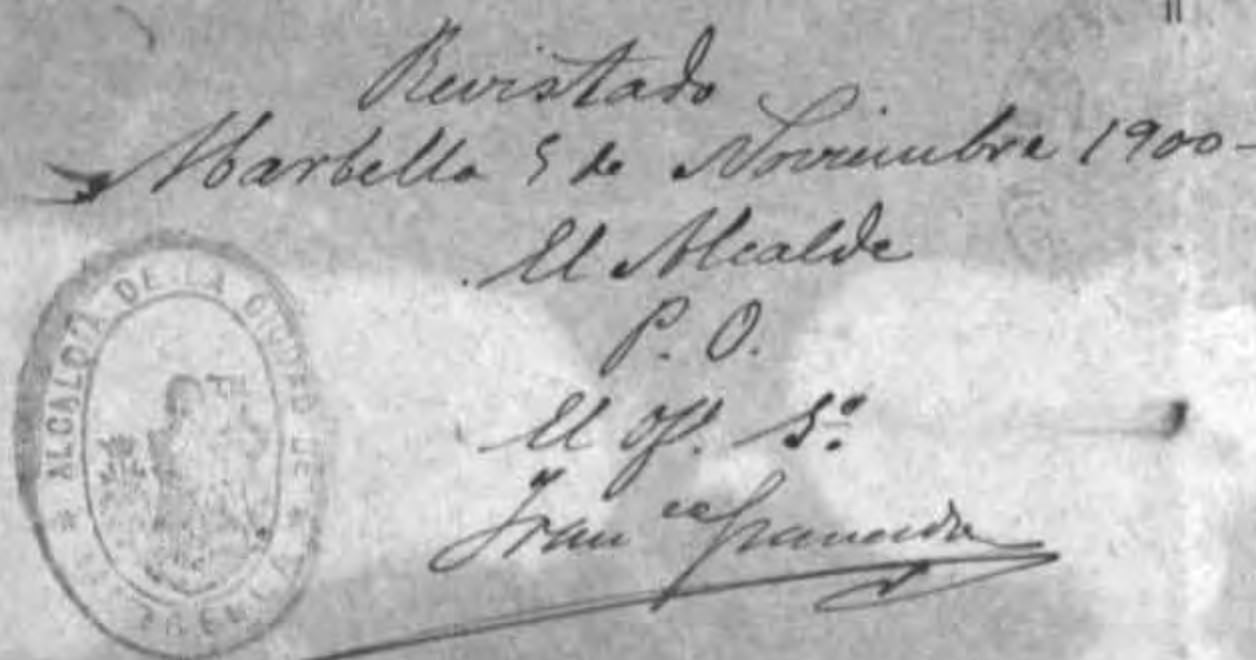 Revistado
Marbella 5 de Noviembre 1900-
El Alcalde
P. O.
El of. 3º
Fran co Granada
ALCALDIA DE LA CIUDAD DE